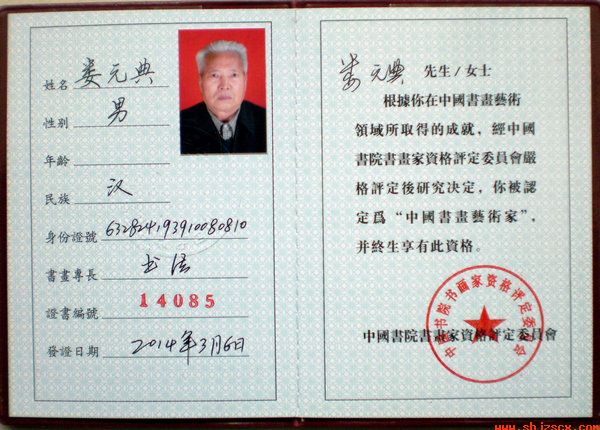 姓名 娄元典
性别 男
年齡
民族 汉
身份證號 632824193910080810
書畫專長 书法
證書編號 14085
發證日期 2014年3月6日
娄元典 先生/女士
根據你在中國書畫藝術
領域所取得的成就，經中國
書院書畫家資格評定委員會嚴
格評定後研究決定，你被認
定爲“中國書畫藝術家”，
并終生享有此資格。
中國書院書畫家資格評定委員會
中国书院书画家资格评定委员会
www.shjzscx.com